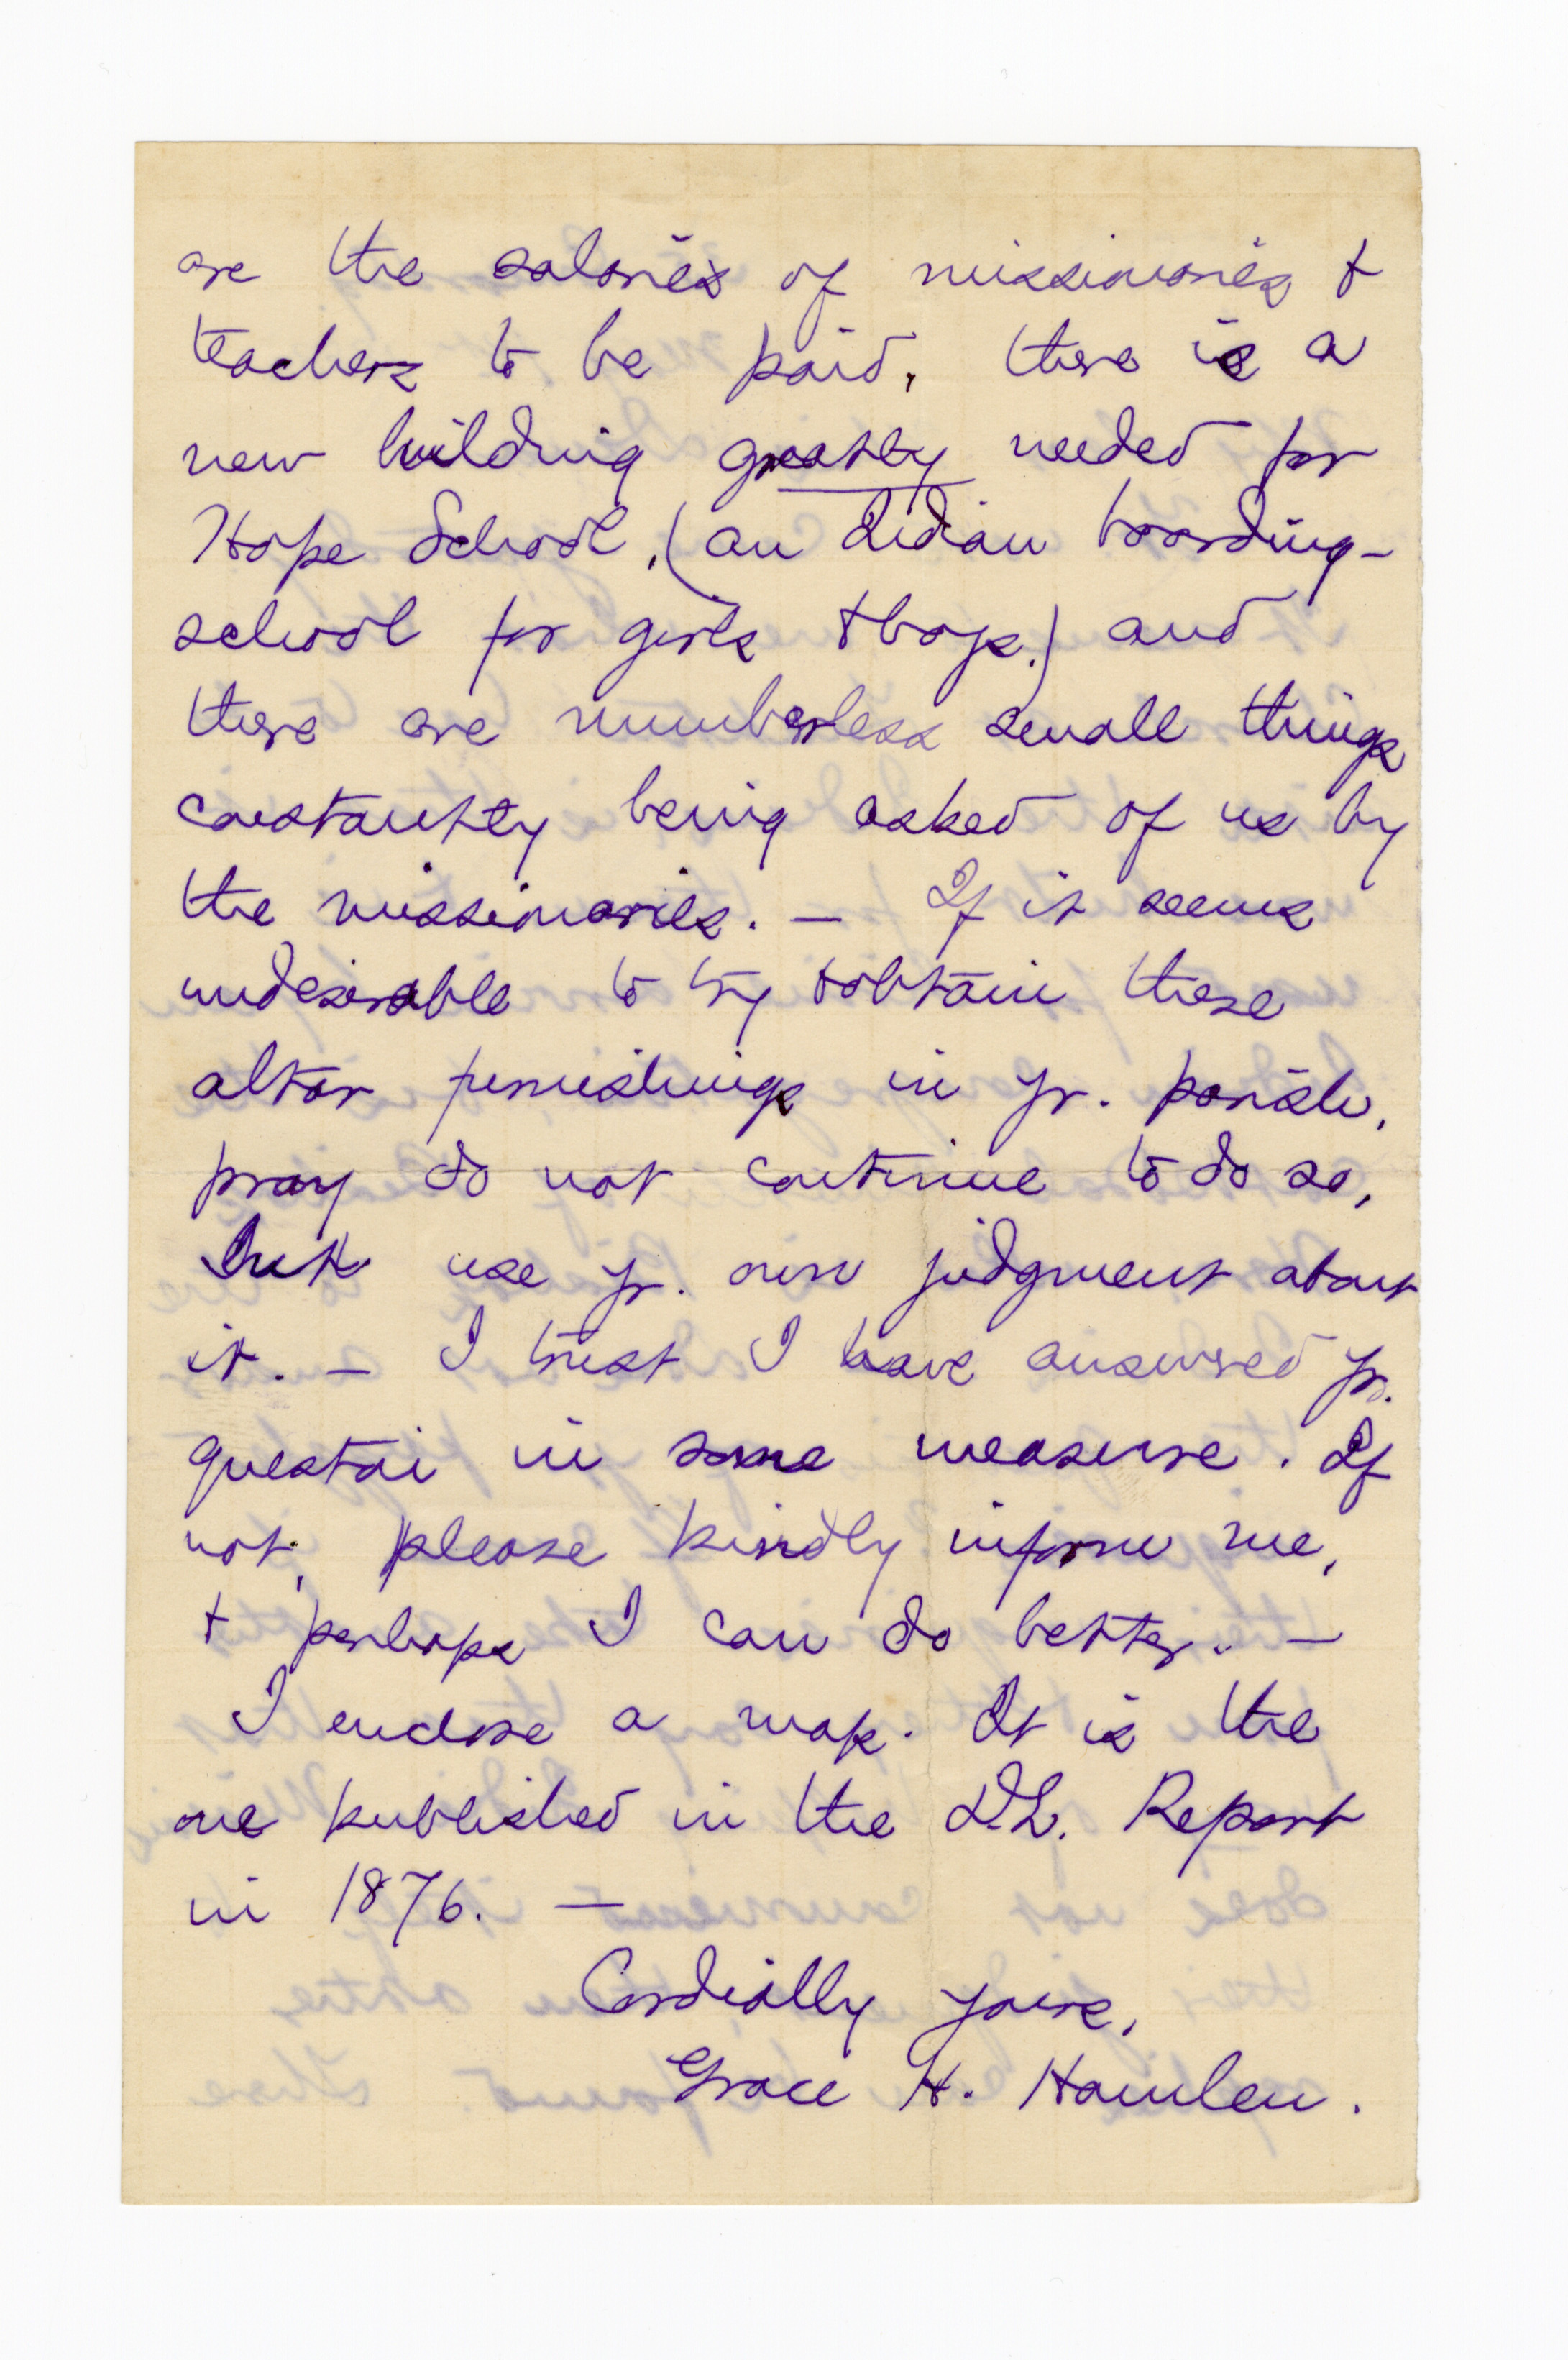 are the salaries of missionaries +
teachers to be paid, there is a
new building greatly needed for
Hope School, (an Indian boarding-
school for girls + boys.) and
there are numberless small things
constantly being asked of us by
the missionaries. — If it seems
undesirable to try to obtain these
altar furnishings in yr. parish,
pray do not continue to do so,
but use yr. own judgment about
it. — I trust I have answered yr.
question in some measure. If
not, please kindly inform me,
+ perhaps I can do better. —
I enclose a map. It is the
one published in the D.L. Report
in 1876. —
Cordially yours,
Grace H. Hamlen.